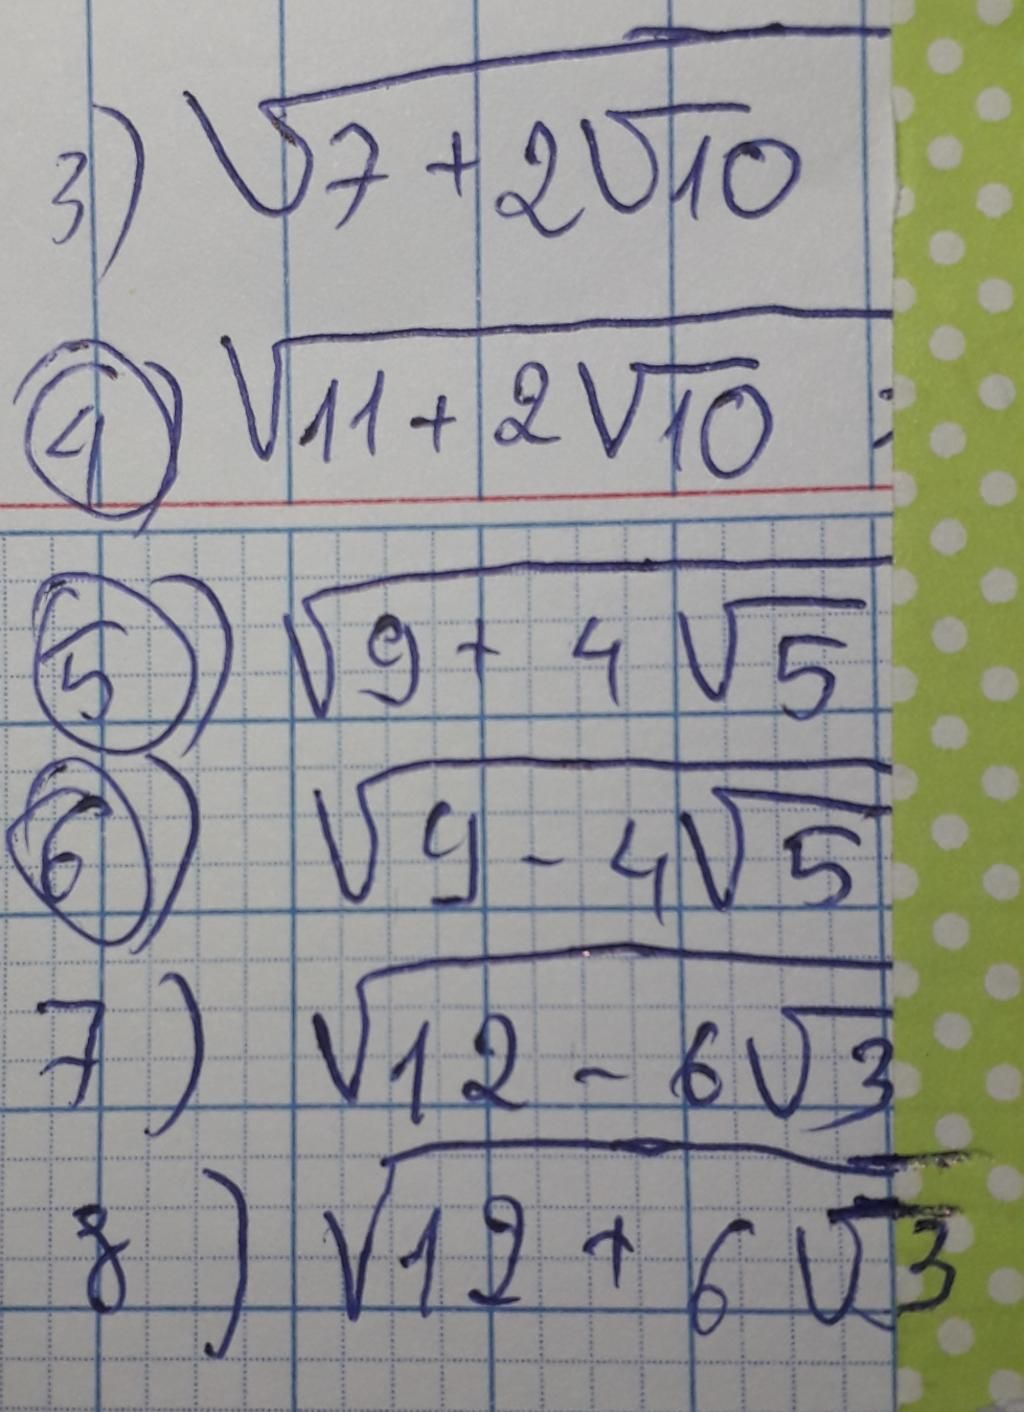 3) √(7 + 2√10)
4) √(11 + 2√10)
5) √(9 + 4√5)
6) √(9 - 4√5)
7) √(12 - 6√3)
8) √(12 + 6√3)